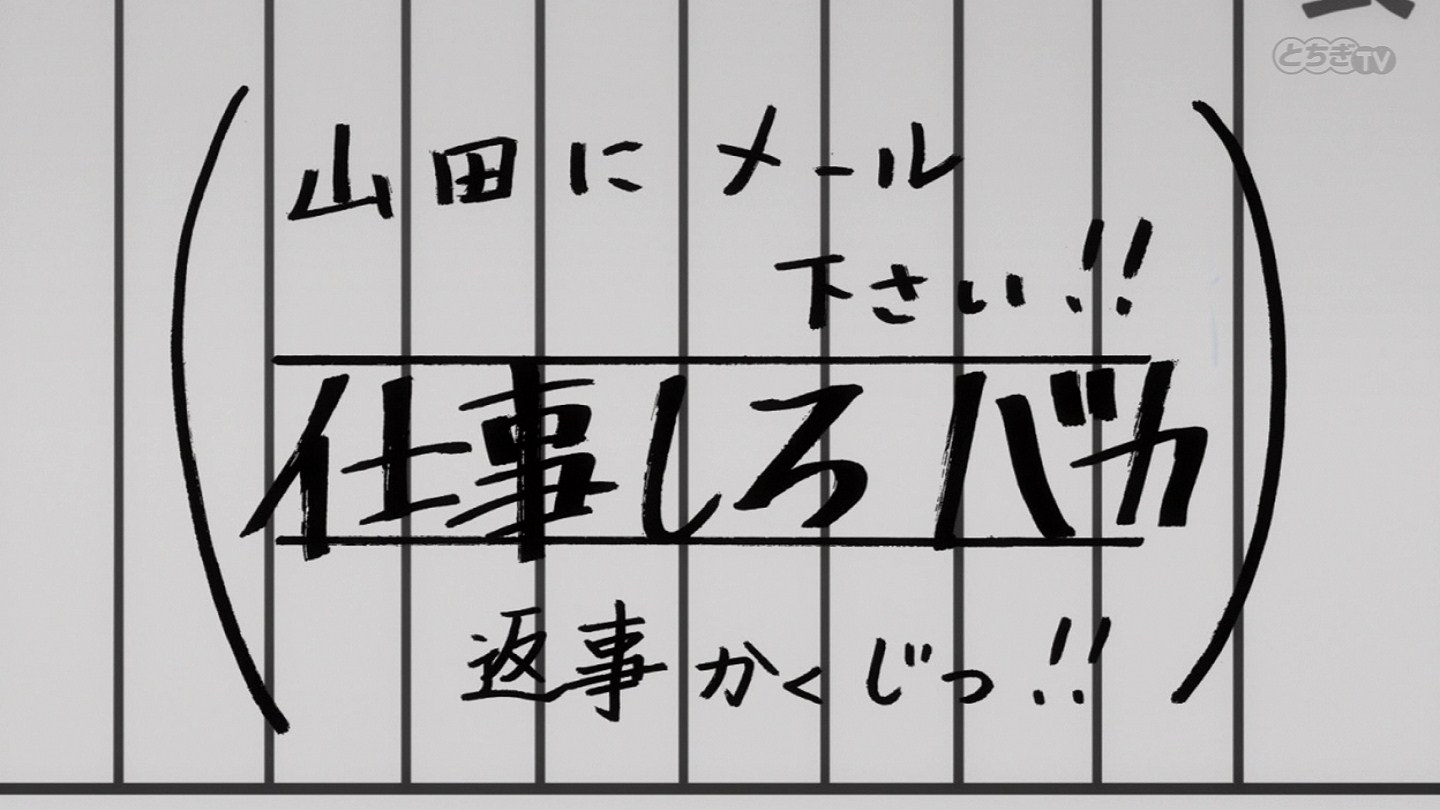 とちぎTV
山田にメール
下さい!!
仕事しろバカ
返事かくじつ!!